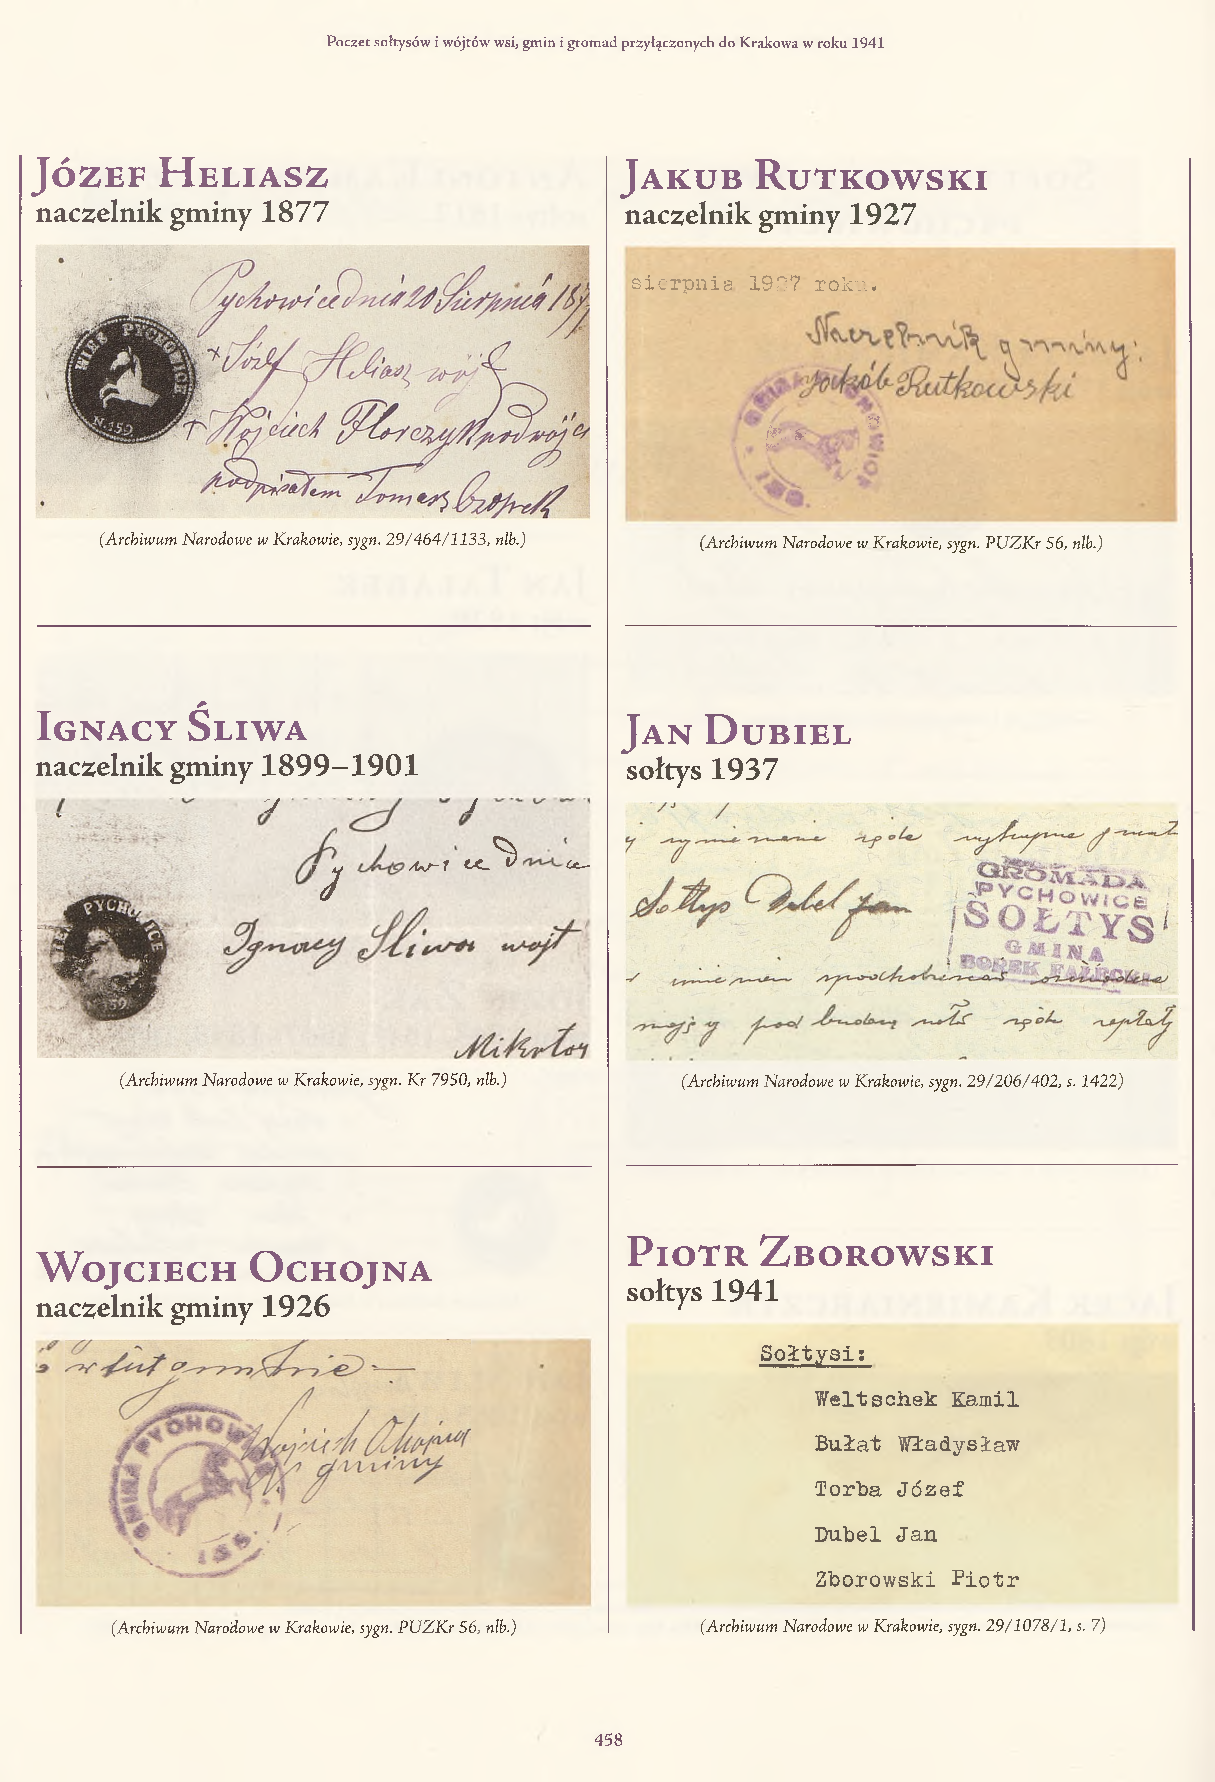 Poczet sołtysów i wójtów wsi, gmin i gromad przyłączonych do Krakowa w roku 1941
Józef Heliasz
naczelnik gminy 1877
Pychowice dnia 20 Sierpnia 187
WIEŚ PYCHOWICE
N.159
+ Józef Heliasz wójt
+ Wojciech Florczyk podwójci
podpisałem Tomasz
(Archiwum Narodowe w Krakowie, sygn. 29/464/1133, nlb.)
Ignacy Śliwa
naczelnik gminy 1899–1901
Pychowice Dnia
PYCHOWICE
159
Ignacy Sliwa wojt
Mikołaj
(Archiwum Narodowe w Krakowie, sygn. Kr 7950, nlb.)
Wojciech Ochojna
naczelnik gminy 1926
GMINA PYCHOW
Wojciech Ochojna
N. gminy
(Archiwum Narodowe w Krakowie, sygn. PUZKr 56, nlb.)
Jakub Rutkowski
naczelnik gminy 1927
sierpnia 1927 roku.
Naczelnik gminy:
Jakób Rutkowski
(Archiwum Narodowe w Krakowie, sygn. PUZKr 56, nlb.)
Jan Dubiel
sołtys 1937
Sołtys Dubel Jan
GROMADA
PYCHOWICE
SOŁTYS
GMINA
BOREK FAŁĘCKI
pod budowę
(Archiwum Narodowe w Krakowie, sygn. 29/206/402, s. 1422)
Piotr Zborowski
sołtys 1941
Sołtysi:
Weltschek Kamil
Bułat Władysław
Torba Józef
Dubel Jan
Zborowski Piotr
(Archiwum Narodowe w Krakowie, sygn. 29/1078/1, s. 7)
458